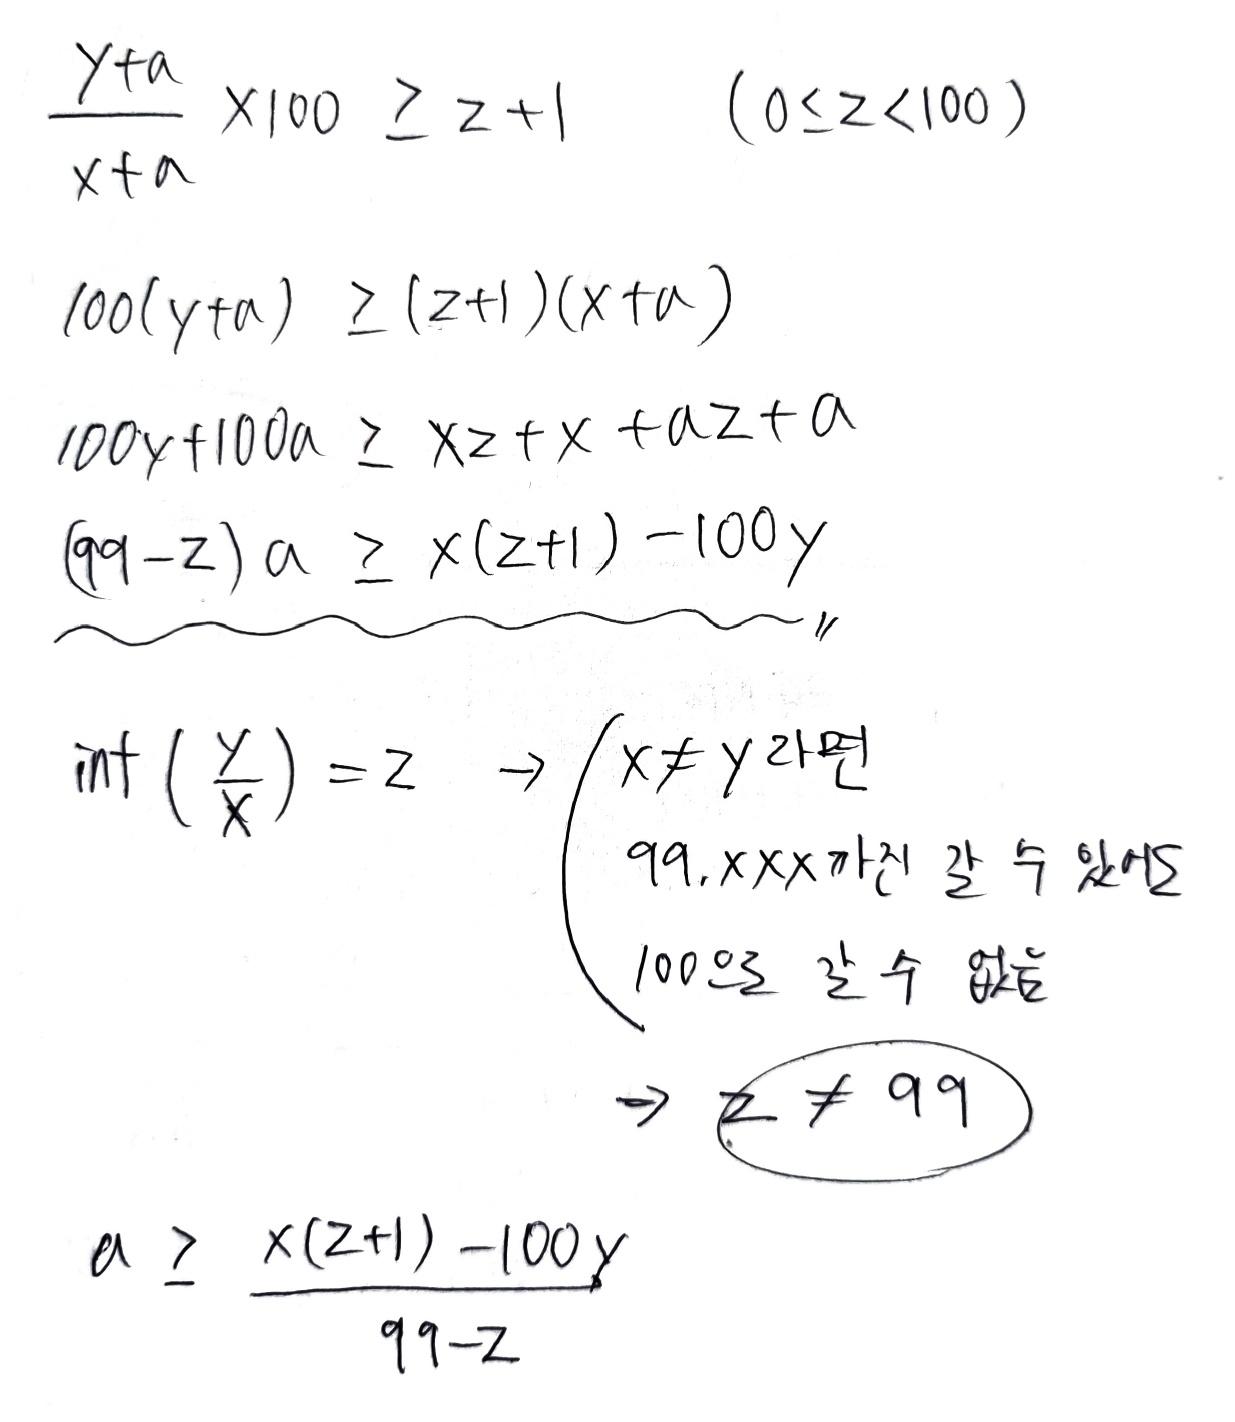 y+a
―― ×100 ≥ z+1 (0≤z<100)
x+a
100(y+a) ≥ (z+1)(x+a)
100y+100a ≥ xz+x+az+a
(99-z)a ≥ x(z+1)-100y
int(y/x) = z → x≠y라면
99.xxx까진 갈 수 있어도
100으로 갈 수 없음
→ z ≠ 99
a ≥ x(z+1)-100y
――
99-z